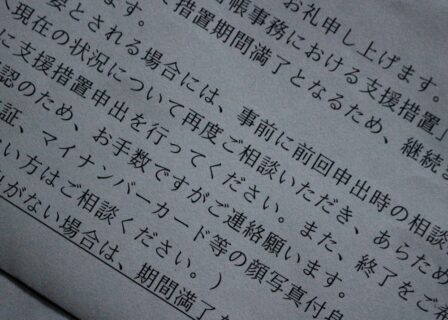 お礼申し上げます。
帳事務における支援措置
ます。措置期間満了となるため、継続
要とされる場合には、事前に前回申出時の相談
現在の状況について再度ご相談いただき、あらため
に支援措置申出を行ってください。また、終了をご希
認のため、お手数ですがご連絡願います。
証、マイナンバーカード等の顔写真付身
い方はご相談ください。)
がない場合は、期間満了